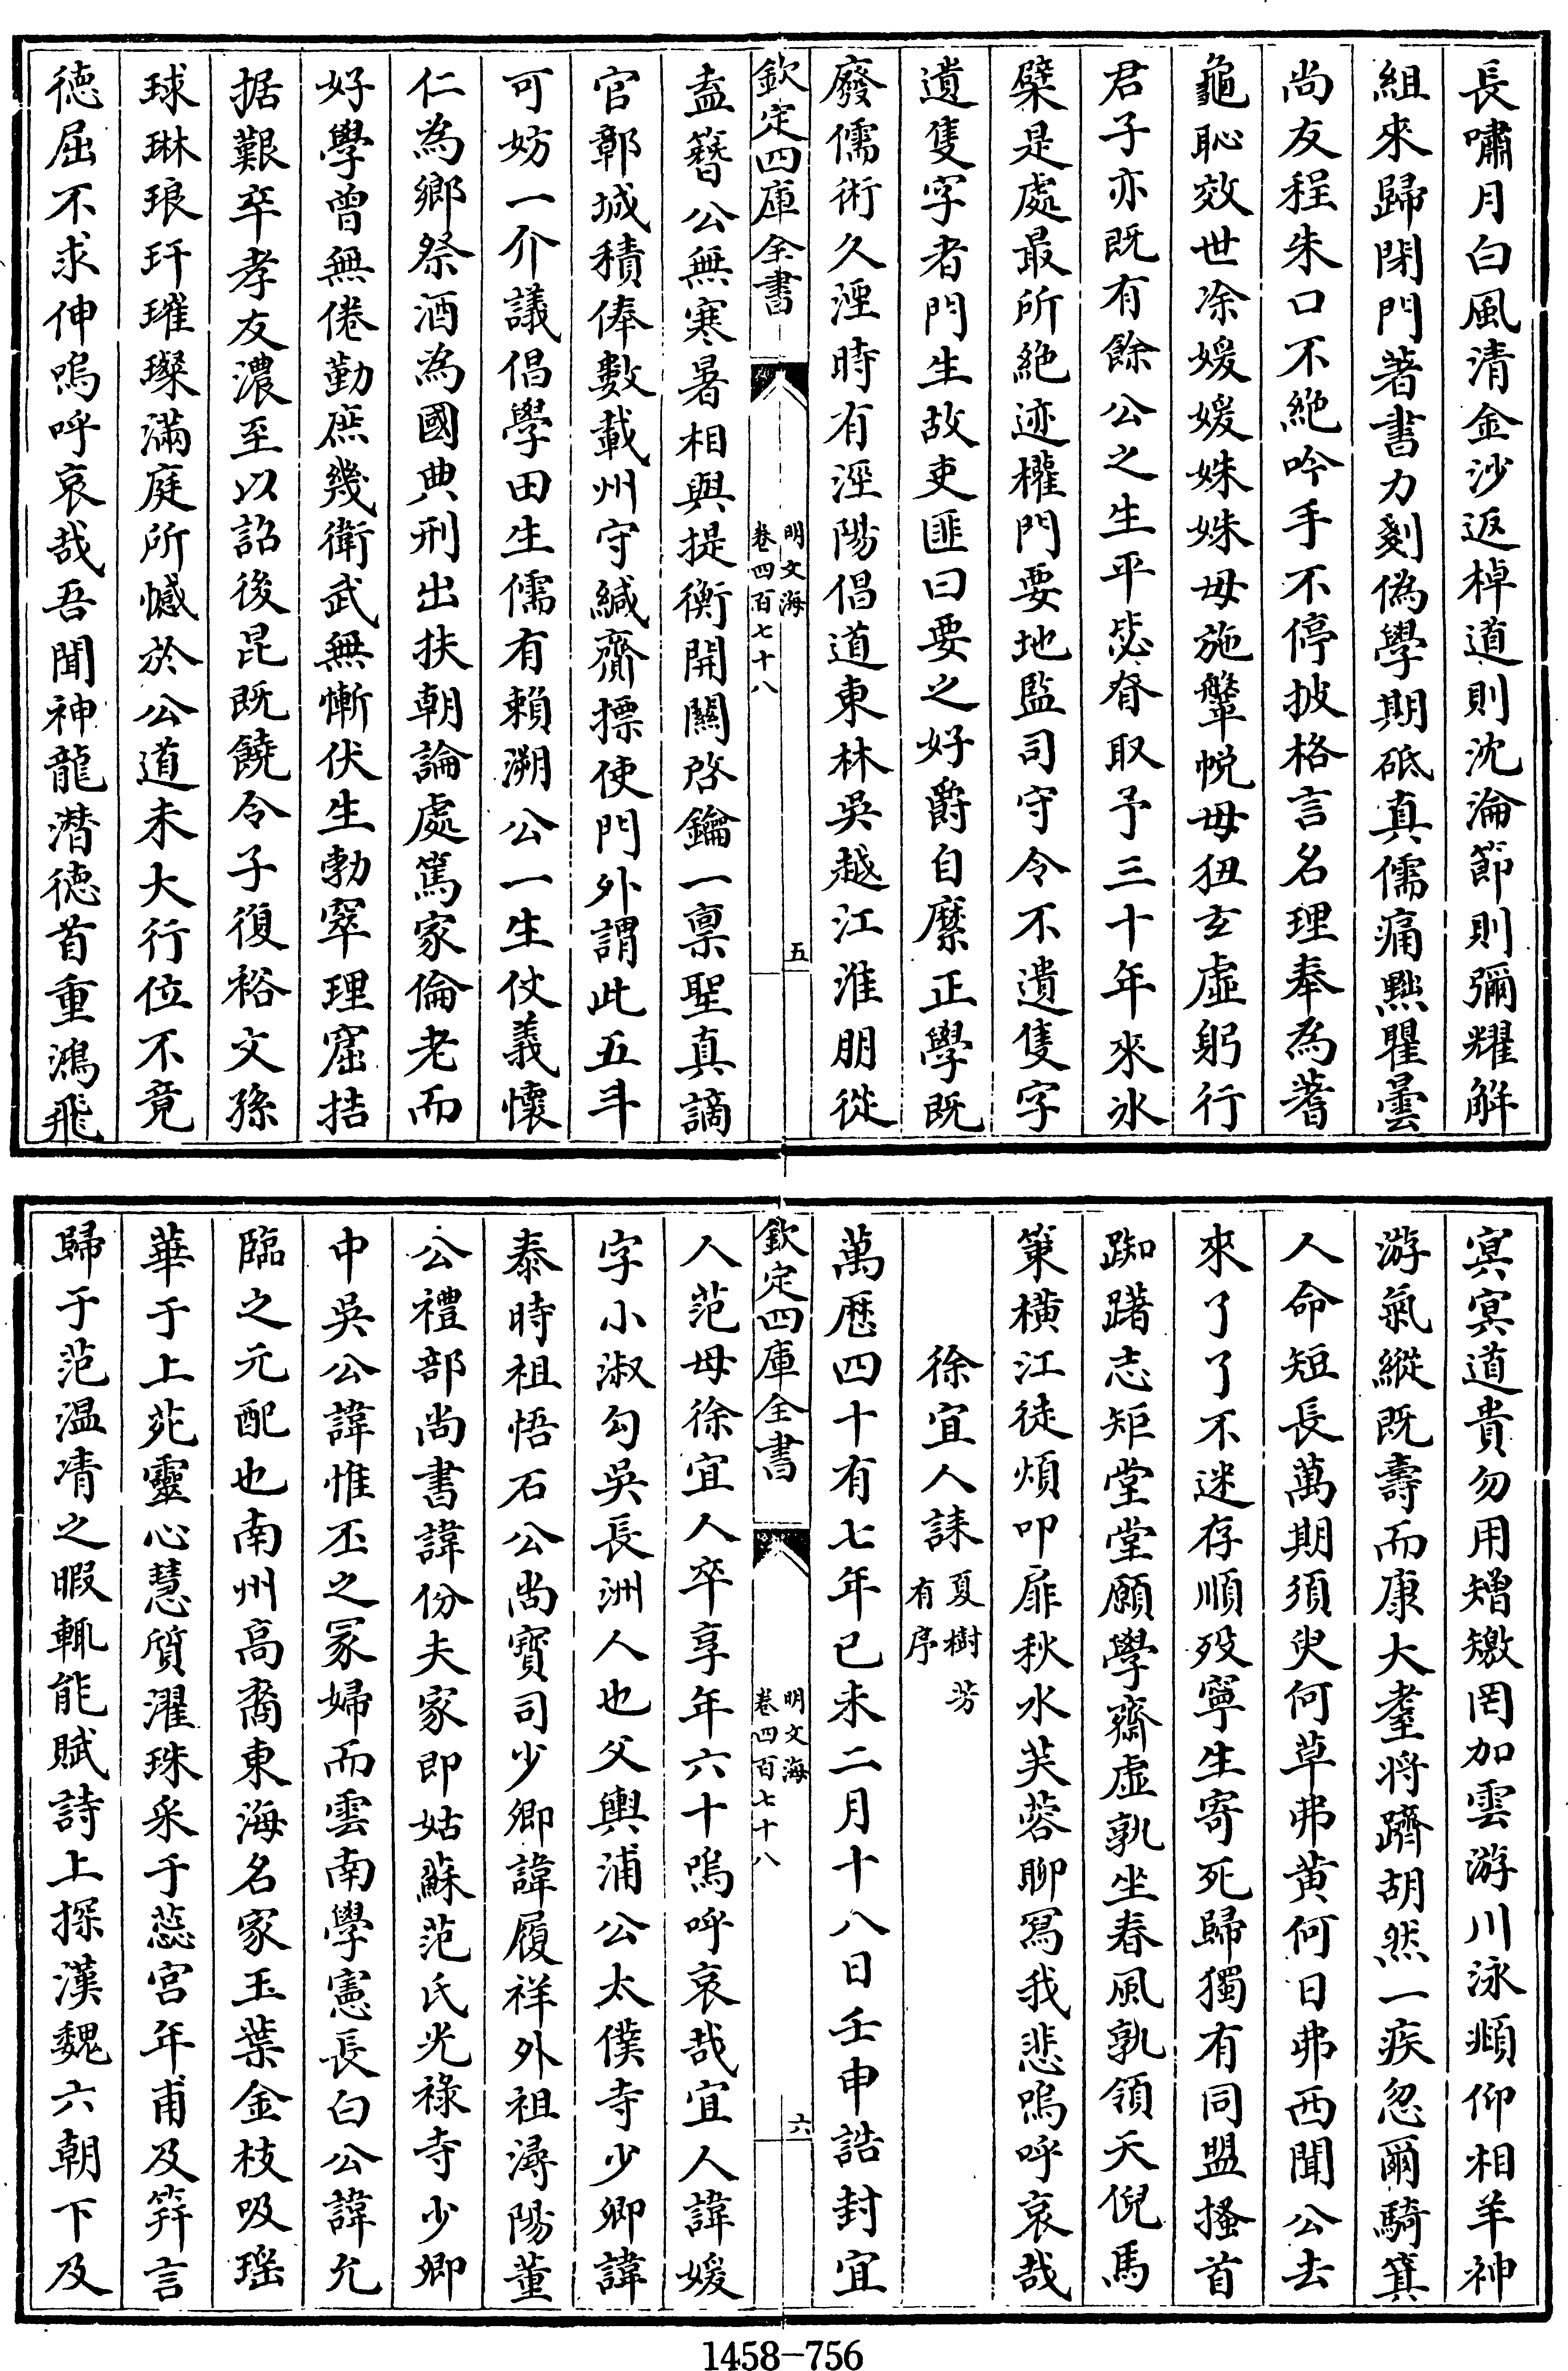 長嘯月白風清金沙返棹道則沈淪節則彌耀解
組來歸閉門著書力剗偽學期砥真儒痛黜瞿曇
尚友程朱口不絶吟手不停披格言名理奉為蓍
龜恥效世凃媛媛姝姝毋施鞶帨毋狃玄虛躬行
君子亦既有餘公之生平毖脊取予三十年來氷
檗是處最所絶迹權門要地監司守令不遺隻字
遺隻字者門生故吏匪曰要之好爵自縻正學既
廢儒術久湮時有涇陽倡道東林吳越江淮朋從
欽定四庫全書
明文海
卷四百七十八
五
盍簪公無寒暑相與提衡開關啓鑰一禀聖真謫
官鄣城積俸數載州守緘齎摽使門外謂此五斗
可妨一介議倡學田生儒有賴溯公一生仗義懷
仁為鄉祭酒為國典刑出扶朝論處篤家倫老而
好學曾無倦勤庶幾衛武無慚伏生勃窣理窟拮
据艱卒孝友濃至以詒後昆既饒令子復裕文孫
球琳琅玕璀璨滿庭所憾於公道未大行位不竟
德屈不求伸嗚呼哀哉吾聞神龍潛德首重鴻飛
冥冥道貴勿用矰繳罔加雲游川泳頫仰相羊神
游氣縱既壽而康大耋將躋胡然一疾忽爾騎箕
人命短長萬期須臾何草弗黄何日弗西聞公去
來了了不迷存順殁寧生寄死歸獨有同盟搔首
踟躇志矩堂堂願學齋虛孰坐春風孰領天倪馬
箠横江徒煩叩扉秋水芙蓉聊寫我悲嗚呼哀哉
徐宜人誄夏樹芳有序
萬厯四十有七年已未二月十八日壬申誥封宜
欽定四庫全書
明文海
卷四百七十八
六
人范母徐宜人卒享年六十嗚呼哀哉宜人諱媛
字小淑勾吳長洲人也父輿浦公太僕寺少卿諱
泰時祖悟石公尚寳司少卿諱履祥外祖潯陽董
公禮部尚書諱份夫家即姑蘇范氏光祿寺少卿
中吳公諱惟丕之冢婦而雲南學憲長白公諱允
臨之元配也南州高裔東海名家玉葉金枝吸瑶
華于上苑靈心慧質濯珠采于蕊宫年甫及筓言
歸于范温凊之暇輒能賦詩上探漢魏六朝下及
1458-756